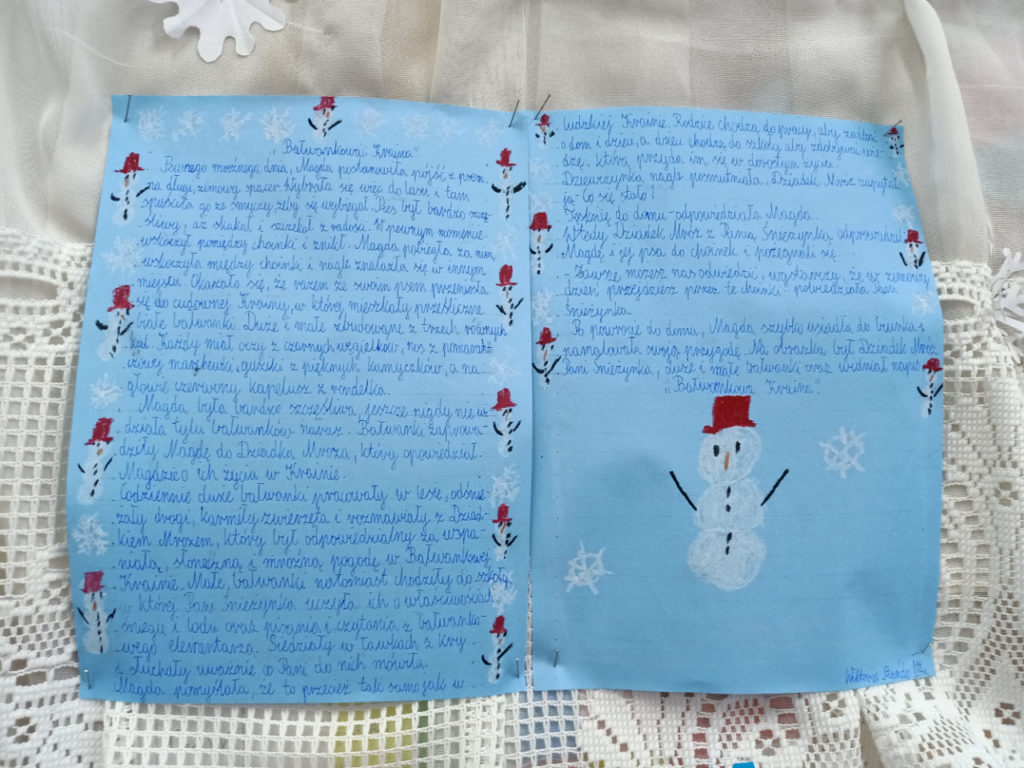 "Bałwankowa Kraina"
Pewnego mroźnego dnia, Magda postanowiła pójść z psem
na długi, zimowy spacer. Wybrała się więc do lasu i tam
spuściła go ze smyczy, żeby się wybiegał. Pies był bardzo szczę-
śliwy, aż skakał i szczekał z radości. W pewnym momencie
wskoczył pomiędzy choinki i znikł. Magda pobiegła za nim,
wskoczyła między choinki i nagle znalazła się w innym
miejscu. Okazało się, że razem ze swoim psem przeniosła
się do cudownej Krainy, w której mieszkały prześliczne
białe bałwanki. Duże i małe zbudowane z trzech równych
kul. Każdy miał oczy z czarnych węgielków, nos z pomarań-
czowej marchewki, guziki z pięknych kamyczków, a na
głowie czerwony kapelusz z rondelka.
Magda była bardzo szczęśliwa, jeszcze nigdy nie wi-
działa tylu bałwanków naraz. Bałwanki zaprowa-
dziły Magdę do Dziadka Mroza, który opowiedział
Magdzie o ich życiu w Krainie.
Codziennie duże bałwanki pracowały w lesie, odśnie-
żały drogi, karmiły zwierzęta i rozmawiały z Dziad-
kiem Mrozem, który był odpowiedzialny za wspa-
niałą, słoneczną i mroźną pogodę w Bałwankowej
Krainie. Małe, bałwanki natomiast chodziły do szkoły,
w której Pani Śnieżynka uczyła ich o właściwościach
śniegu i lodu oraz pisania i czytania z bałwanko-
wego elementarza. Siedziały w ławkach z kry
i słuchały uważnie co Pani do nich mówiła.
Magda pomyślała, że to przecież tak samo jak w
ludzkiej Krainie. Rodzice chodzą do pracy, aby zadbać
o dom i dzieci, a dzieci chodzą do szkoły aby zdobywać wie-
dzę, która przyda im się w dorosłym życiu.
Dziewczynka nagle posmutniała. Dziadek Mróz zapytał
ją: Co się stało?
- Tęsknię do domu - odpowiedziała Magda.
Wtedy Dziadek Mróz z Panią Śnieżynką odprowadzili
Magdę i jej psa do choinek i pożegnali się.
- Zawsze, możesz nas odwiedzić, wystarczy, że w zimowy
dzień przejdziesz przez te choinki - powiedziała Pani
Śnieżynka.
Po powrocie do domu, Magda szybko usiadła do biurka i
namalowała swoją przygodę. Na obrazku był Dziadek Mróz,
Pani Śnieżynka, duże i małe bałwanki oraz widniał napis
"Bałwankowa Kraina".
Wiktoria